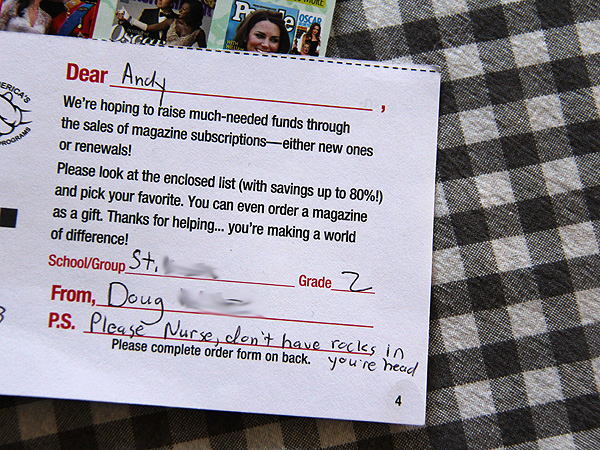 People
OSCAR
Oscar
ERICA'S
PROGRAMS
Dear Andy,
We're hoping to raise much-needed funds through
the sales of magazine subscriptions—either new ones
or renewals!
Please look at the enclosed list (with savings up to 80%!)
and pick your favorite. You can even order a magazine
as a gift. Thanks for helping... you're making a world
of difference!
School/Group St. Grade 2
From, Doug
P.S. Please Nurse, don't have rocks in
you're head
Please complete order form on back.
4